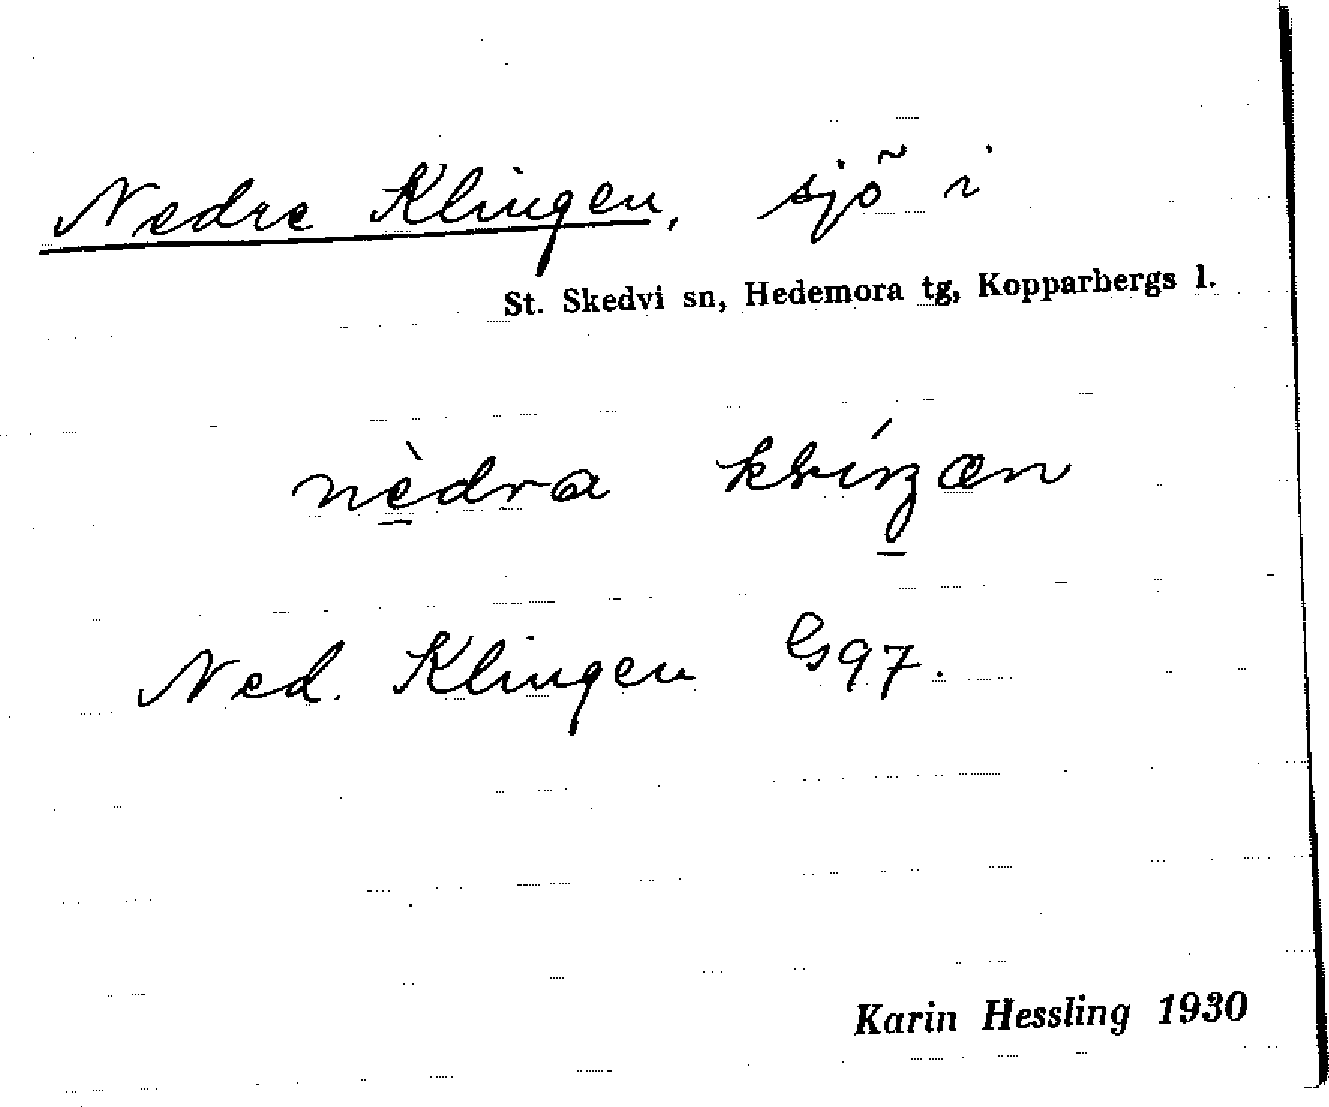 Nedre Klingen, sjö i
St. Skedvi sn, Hedemora tg, Kopparbergs l.
nèdra
Ned. Klingen G97.
Karin Hessling 1930